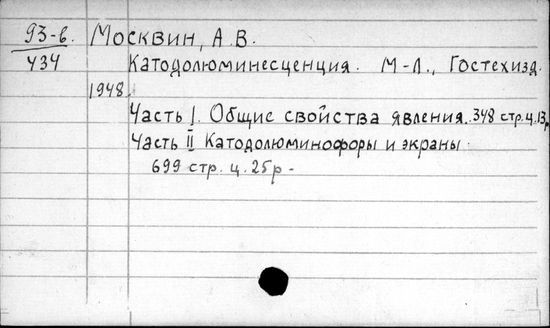 93-в. Москвин, А.В.
434 Католюминесценция. М-Л., Гостехизд.
1948.
Часть I. Общие свойства явления. 348 стр. ц. 13р.
Часть II Катодолюминофоры и экраны.
699 стр. ц. 25р -